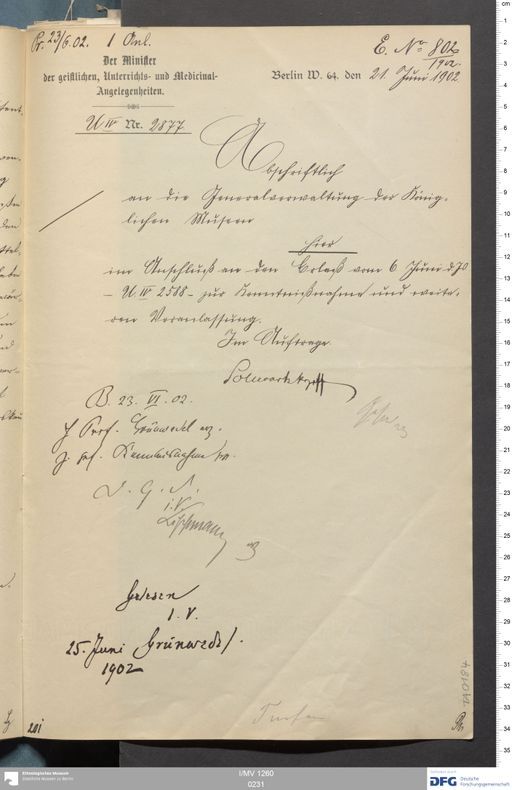 Pr. 23/6.02. 1 Anl.
E. No 802/1902.
Der Minister
der geistlichen, Unterrichts- und Medicinal-
Angelegenheiten.
Berlin W. 64. den 21. Juni 1902
U IV Nr. 2877
Abschriftlich
an die Generalverwaltung der König-
lichen Museen
hier
im Anschluß an den Erlaß vom 6 Juni d. Js
- U IV 2588 - zur Kenntnißnahme und weite-
ren Veranlassung.
Im Auftrage
B. 23. VI. 02.
Prof. Grünwedel
Kenntnisnahme
D. G. V.
i. V.
Gelesen
I. V.
25. Juni Grünwedel.
1902
201
TA 0184
Ethnologisches Museum
Staatliche Museen zu Berlin
I/MV 1260
0231
DFG Deutsche
Forschungsgemeinschaft